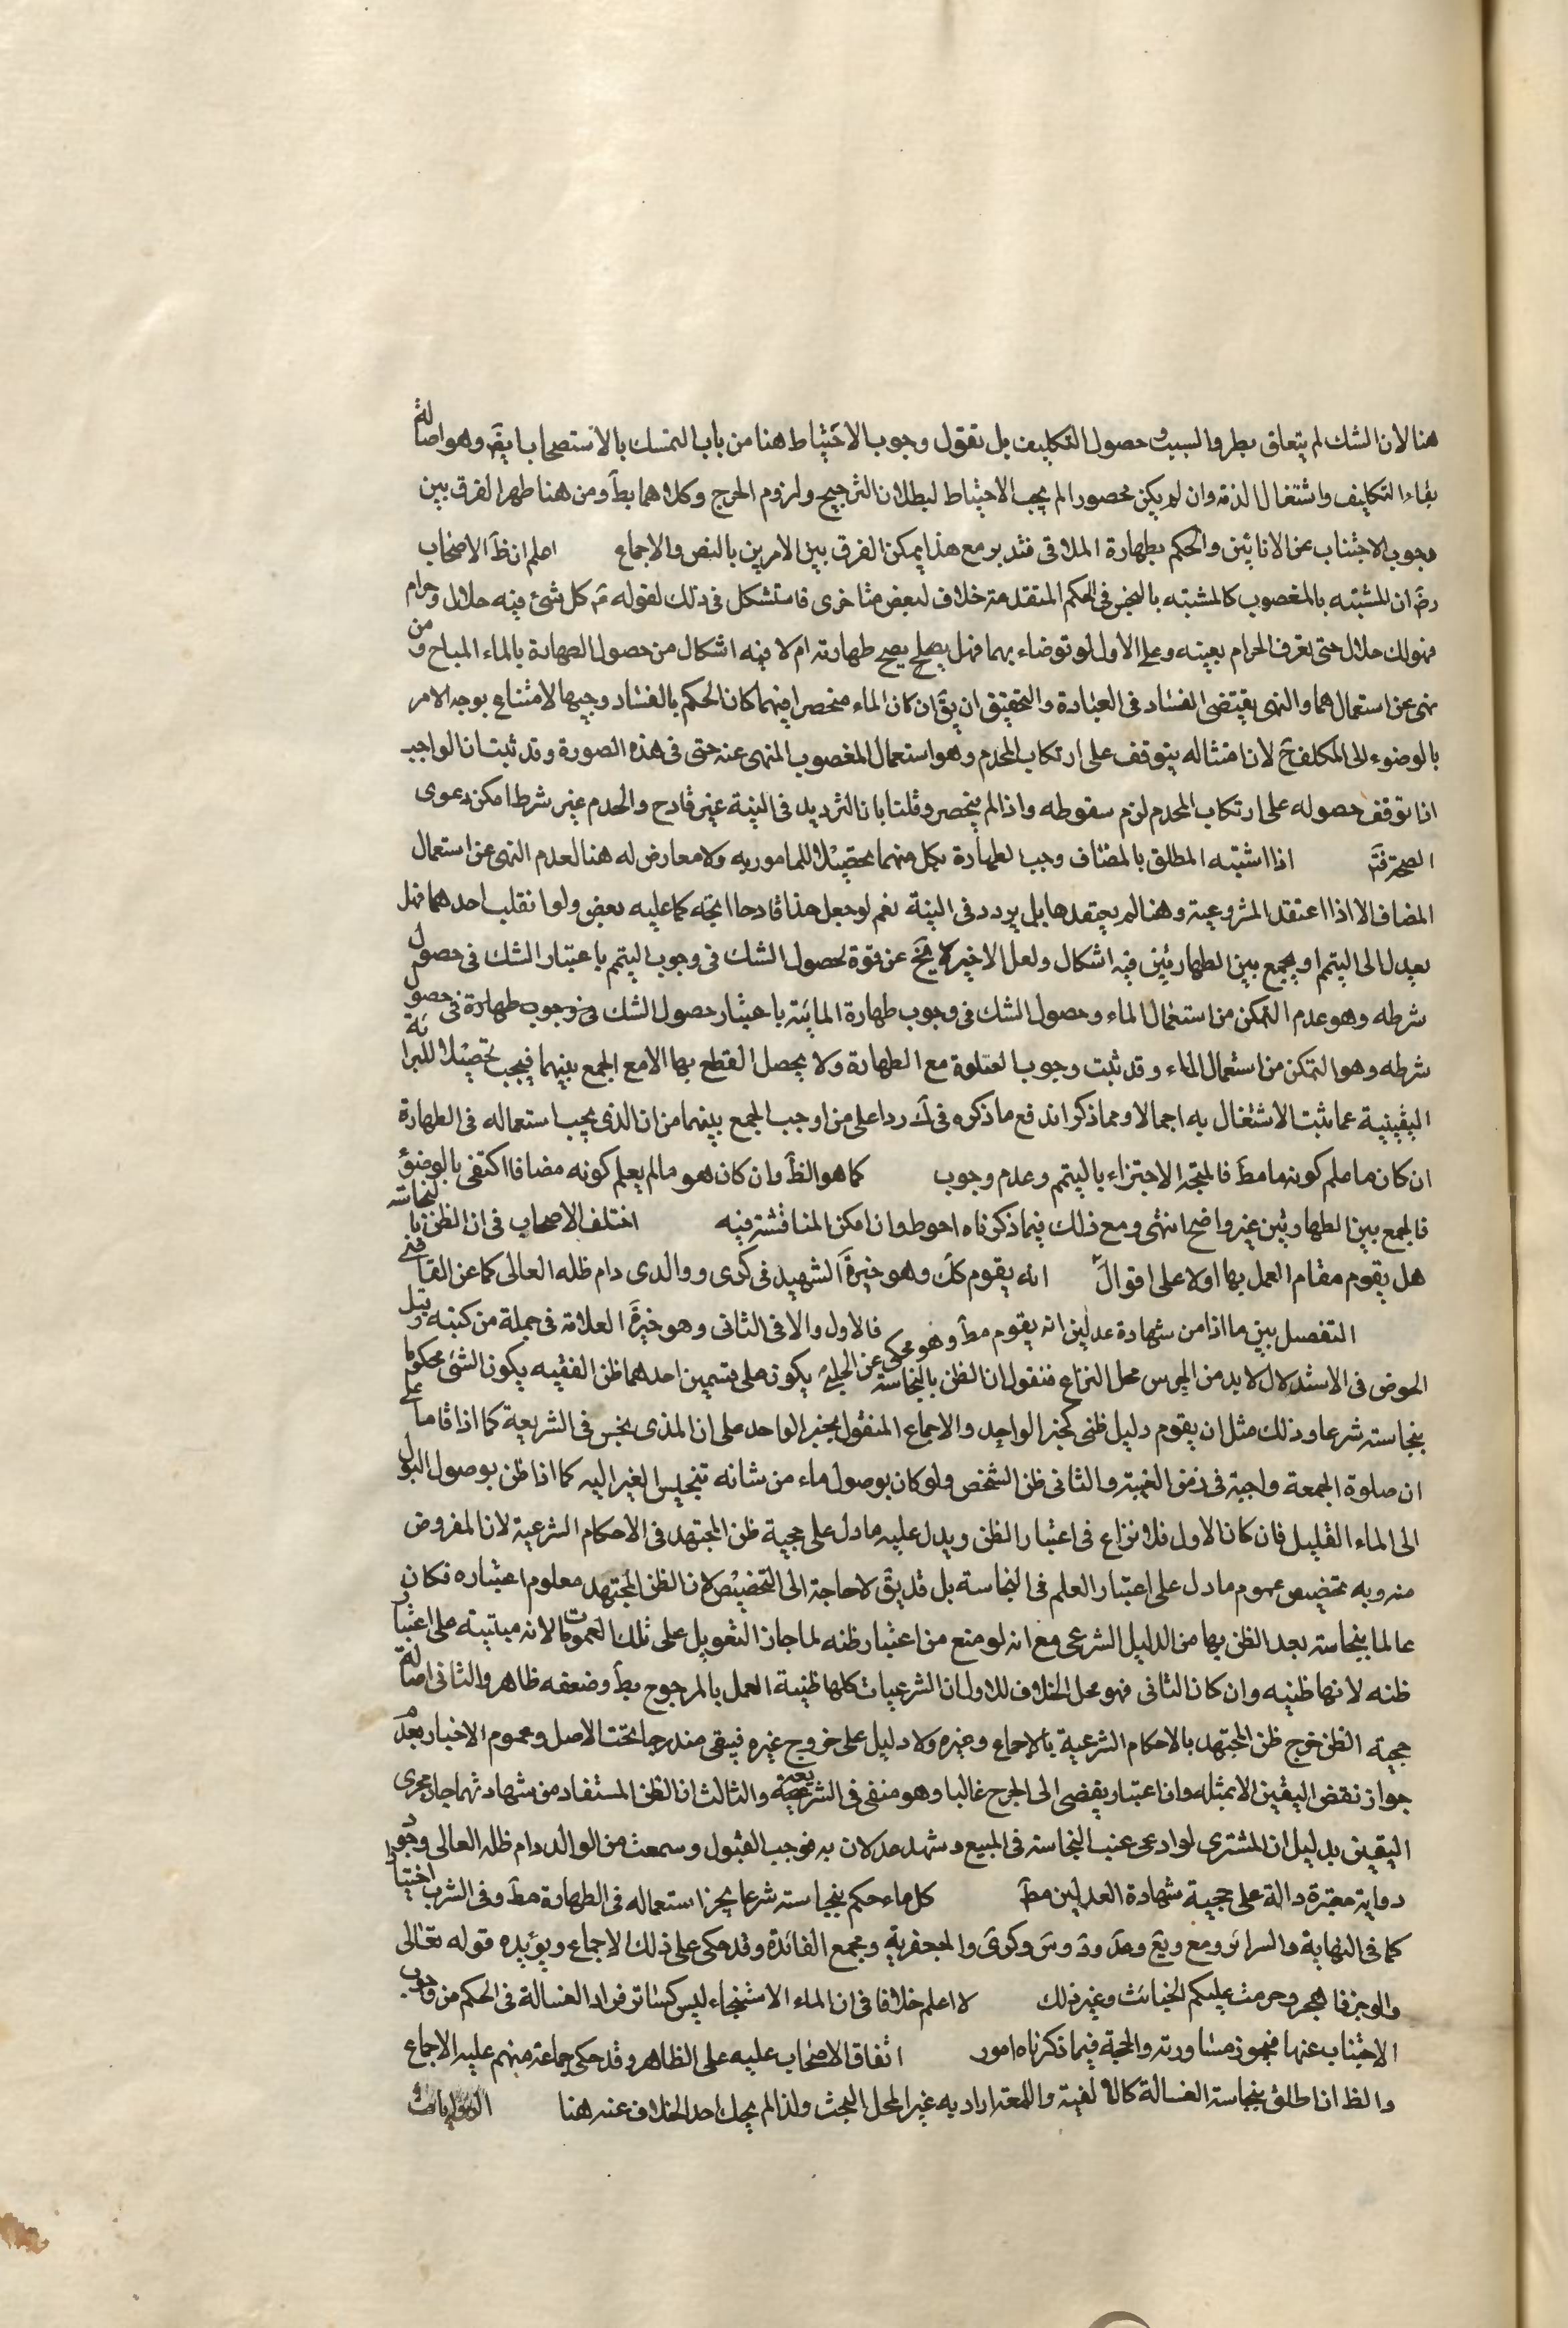 هنا لان الشك لم يتعلق بطرو السبب و حصول التكليف بل نقول وجوب الاحتياط هنا من باب التمسك بالاستصحاب ايضَ وهو اصالة
بقاء التكليف واشتغال الذمة وان لم يكن محصورا لم يجب الاحتياط لبطلان الترجيح ولزوم الحرج وكلاهما بطَ ومن هنا ظهر الفرق بين
وجوب الاجتناب عن الانائين والحكم بطهارة الملاقى فتدبر مع هذا يمكن الفرق بين الامرين بالنص والاجماع اعلم ان ظَ الاصحاب
رضَ ان المشتبه بالمغصوب كالمشتبه بالنجس فى الحكم المتقدمة خلاف لبعض متاخرى فاستشكل فى ذلك لقوله عَ كل شئ فيه حلال وحرام
فهو لك حلال حتى تعرف الحرام بعينه وعلى الاول لو توضاء بهما فهل يصلح يصح طهارته ام لا فيه اشكال من حصول الطهارة بالماء المباح ومن
نهى عن استعمالهما والنهى يقتضى الفساد فى العبادة والتحقيق ان يقَ ان كان الماء منحصرا فيهما كان الحكم بالفساد وجيها لامتناع بوجه الامر
بالوضوء الى المكلف حَ لان امتثاله يتوقف على ارتكاب المحرم وهو استعمال المغصوب المنهى عنه حتى فى هذه الصورة وقد ثبت ان الواجب
اذا توقف حصوله على ارتكاب المحرم لزم سقوطه واذا لم ينحصر وقلنا بان الترديد فى النية غير قادح والجزم غير شرط امكن دعوى
الصحة فتَ اذا اشتبه المطلق بالمضاف وجب الطهارة بكل منهما تحصيلا للماموربه ولا معارض له هنا لعدم النهى عن استعمال
المضاف الا اذا اعتقد المشروعية وهنا لم يعتقدها بل يردد فى النية نعم لو جعل هذا قادحا اتجه كما عليه بعض ولو انقلب احدهما فهل
يعدل الى التيمم او يجمع بين الطهارتين فيه اشكال ولعل الاخير لا يخَ عن قوة لحصول الشك فى وجوب التيمم باعتبار الشك فى حصول
شرطه وهو عدم التمكن من استعمال الماء وحصول الشك فى وجوب طهارة المائية باعتبار حصول الشك فى وجوب طهارة فى حصول
شرطه وهو التمكن من استعمال الماء وقد ثبت وجوب الصلوة مع الطهارة ولا يحصل القطع بها الا مع الجمع بينهما فيجب تحصيلا للبرائة
اليقينية عما ثبت الاشتغال به اجمالا ومما ذكر اندفع ما ذكره فى كَ ردا على من اوجب الجمع بينهما من ان الذى يجب استعماله فى الطهارة
ان كان ما علم كونه ماء مطَ فالمتجه الاجتزاء بالتيمم وعدم وجوب كما هو الظَ وان كان هو ما لم يعلم كونه مضافا اكتفى بالوضؤ
فالجمع بين الطهارتين غير واضح انتهى ومع ذلك فيما ذكرناه احوط وان امكن المناقشة فيه اختلف الاصحاب فى ان الظن بالنجاسة
هل يقوم مقام العمل بها اولا على اقوال انه يقوم كلَ وهو خيرة الشهيد فى كرى ووالدى دام ظله العالى كما عن القاضى
التفصيل بين ما اذا من شهادة عدلين انه يقوم مطَ وهو محكى عن الحلى فالاول والا فى الثانى وهو خيرة العلامة فى جملة من كتبه وقبل
الخوض فى الاستدلال لابد من تحرير محل النزاع فنقول ان الظن بالنجاسة يكون على قسمين احدهما ظن الفقيه يكون الشئ محكوما
بنجاسته شرعا وذلك مثل ان يقوم دليل ظنى كخبر الواحد والاجماع المنقول بخبر الواحد على ان المذى نجس فى الشريعة كما اذا قام على
ان صلوة الجمعة واجبة فى زمن الغيبة والثانى ظن الشخص ولو كان بوصول ماء من شانه تنجيس الغير اليه كما اذا ظن بوصول البول
الى الماء القليل فان كان الاول فلا نزاع فى اعتبار الظن ويدل عليه ما دل على حجية ظن المجتهد فى الاحكام الشرعية لان المفروض
منه وبه تخصيص عموم ما دل على اعتبار العلم فى النجاسة بل قد يقَ لا حاجة الى التخصيص لان الظن المجتهد معلوم اعتباره فكان
عالما بنجاسته بعد الظن بها من الدليل الشرعى مع انه لو منع من اعتبار ظنه لما جاز التعويل على تلك العمومات لانه مبتنية على اعتبار
ظنه لانها ظنية وان كان الثانى فهو محل الخلاف للاول ان الشرعيات كلها ظنية العمل بالمرجوح بطَ وضعفه ظاهر والثانى اصالة
حجية الظن خرج ظن المجتهد بالاحكام الشرعية بالاجماع وغيره ولا دليل على خروج غيره فيبقى مندرجا تحت الاصل وعموم الاخبار بعدم
جواز نقض اليقين الا بمثله وان اعتبار يفضى الى الحرج غالبا وهو منفى فى الشريعة والثالث ان الظن المستفاد من شهادتهما جار مجرى
اليقين بدليل ان المشترى لو ادعى عيب النجاسة فى المبيع وشهد عدلان به فوجب القبول وسمعت من الوالد دام ظله العالى وجود
رواية معتبرة دالة على حجية شهادة العدلين مطَ كل ماء حكم بنجاسته شرعا يحرز استعماله فى الطهارة مطَ وفى الشرب اختيارا
كما فى النهاية والسرائر ومع ويع وعدَ ودَ وسَ وكرى والجعفرية ومجمع الفائدة وقد حكى على ذلك الاجماع ويؤيده قوله تعالى
والرجز فاهجر وحرمت عليكم الخبائث وغير ذلك لا اعلم خلافا فى ان الماء الاستنجاء ليس كسائر افراد الغسالة فى الحكم من وجوب
الاجتناب عنها فيجوز مساورته والحجة فيما ذكرناه امور اتفاق الاصحاب عليه على الظاهر وقد حكى جماعة منهم عليه الاجماع
والظ ان اطلق بنجاسة الغسالة كالالفية واللمعة اراد به غير المحل البحث ولذا لم يحك احد الخلاف عنه هنا الروايات